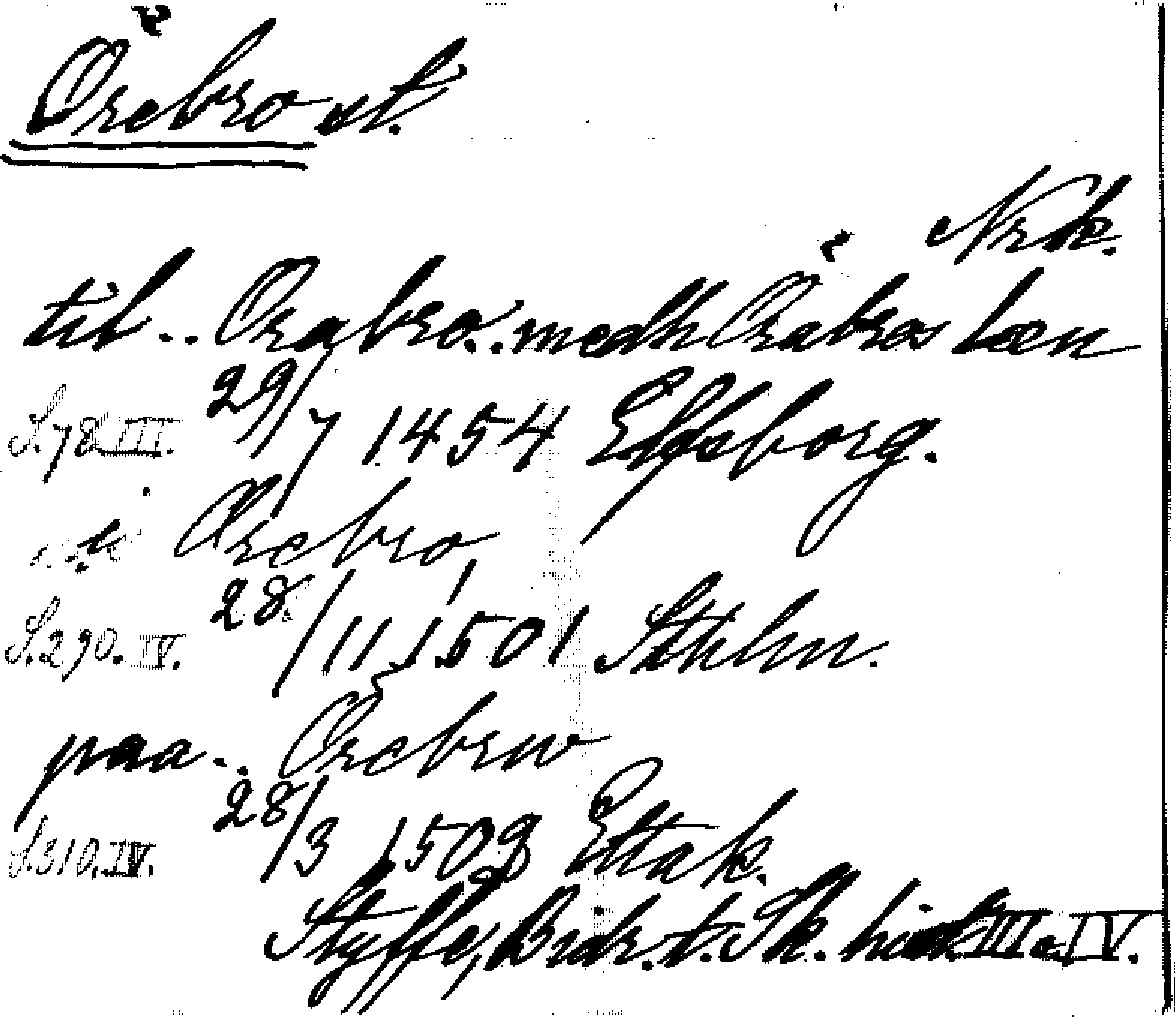 Örebro st.
Nrk.
til.. Örabro.. medh Örabros læn
S. 78 III. 29/7 1454 Elfsborg.
Örebro
S. 290. IV. 28/11 1501 Sthlm.
paa.. Örebrw
S. 310. IV. 28/3 1509 Ettak.
Styffe, Bidr. t. Sk. hist. III o. IV.